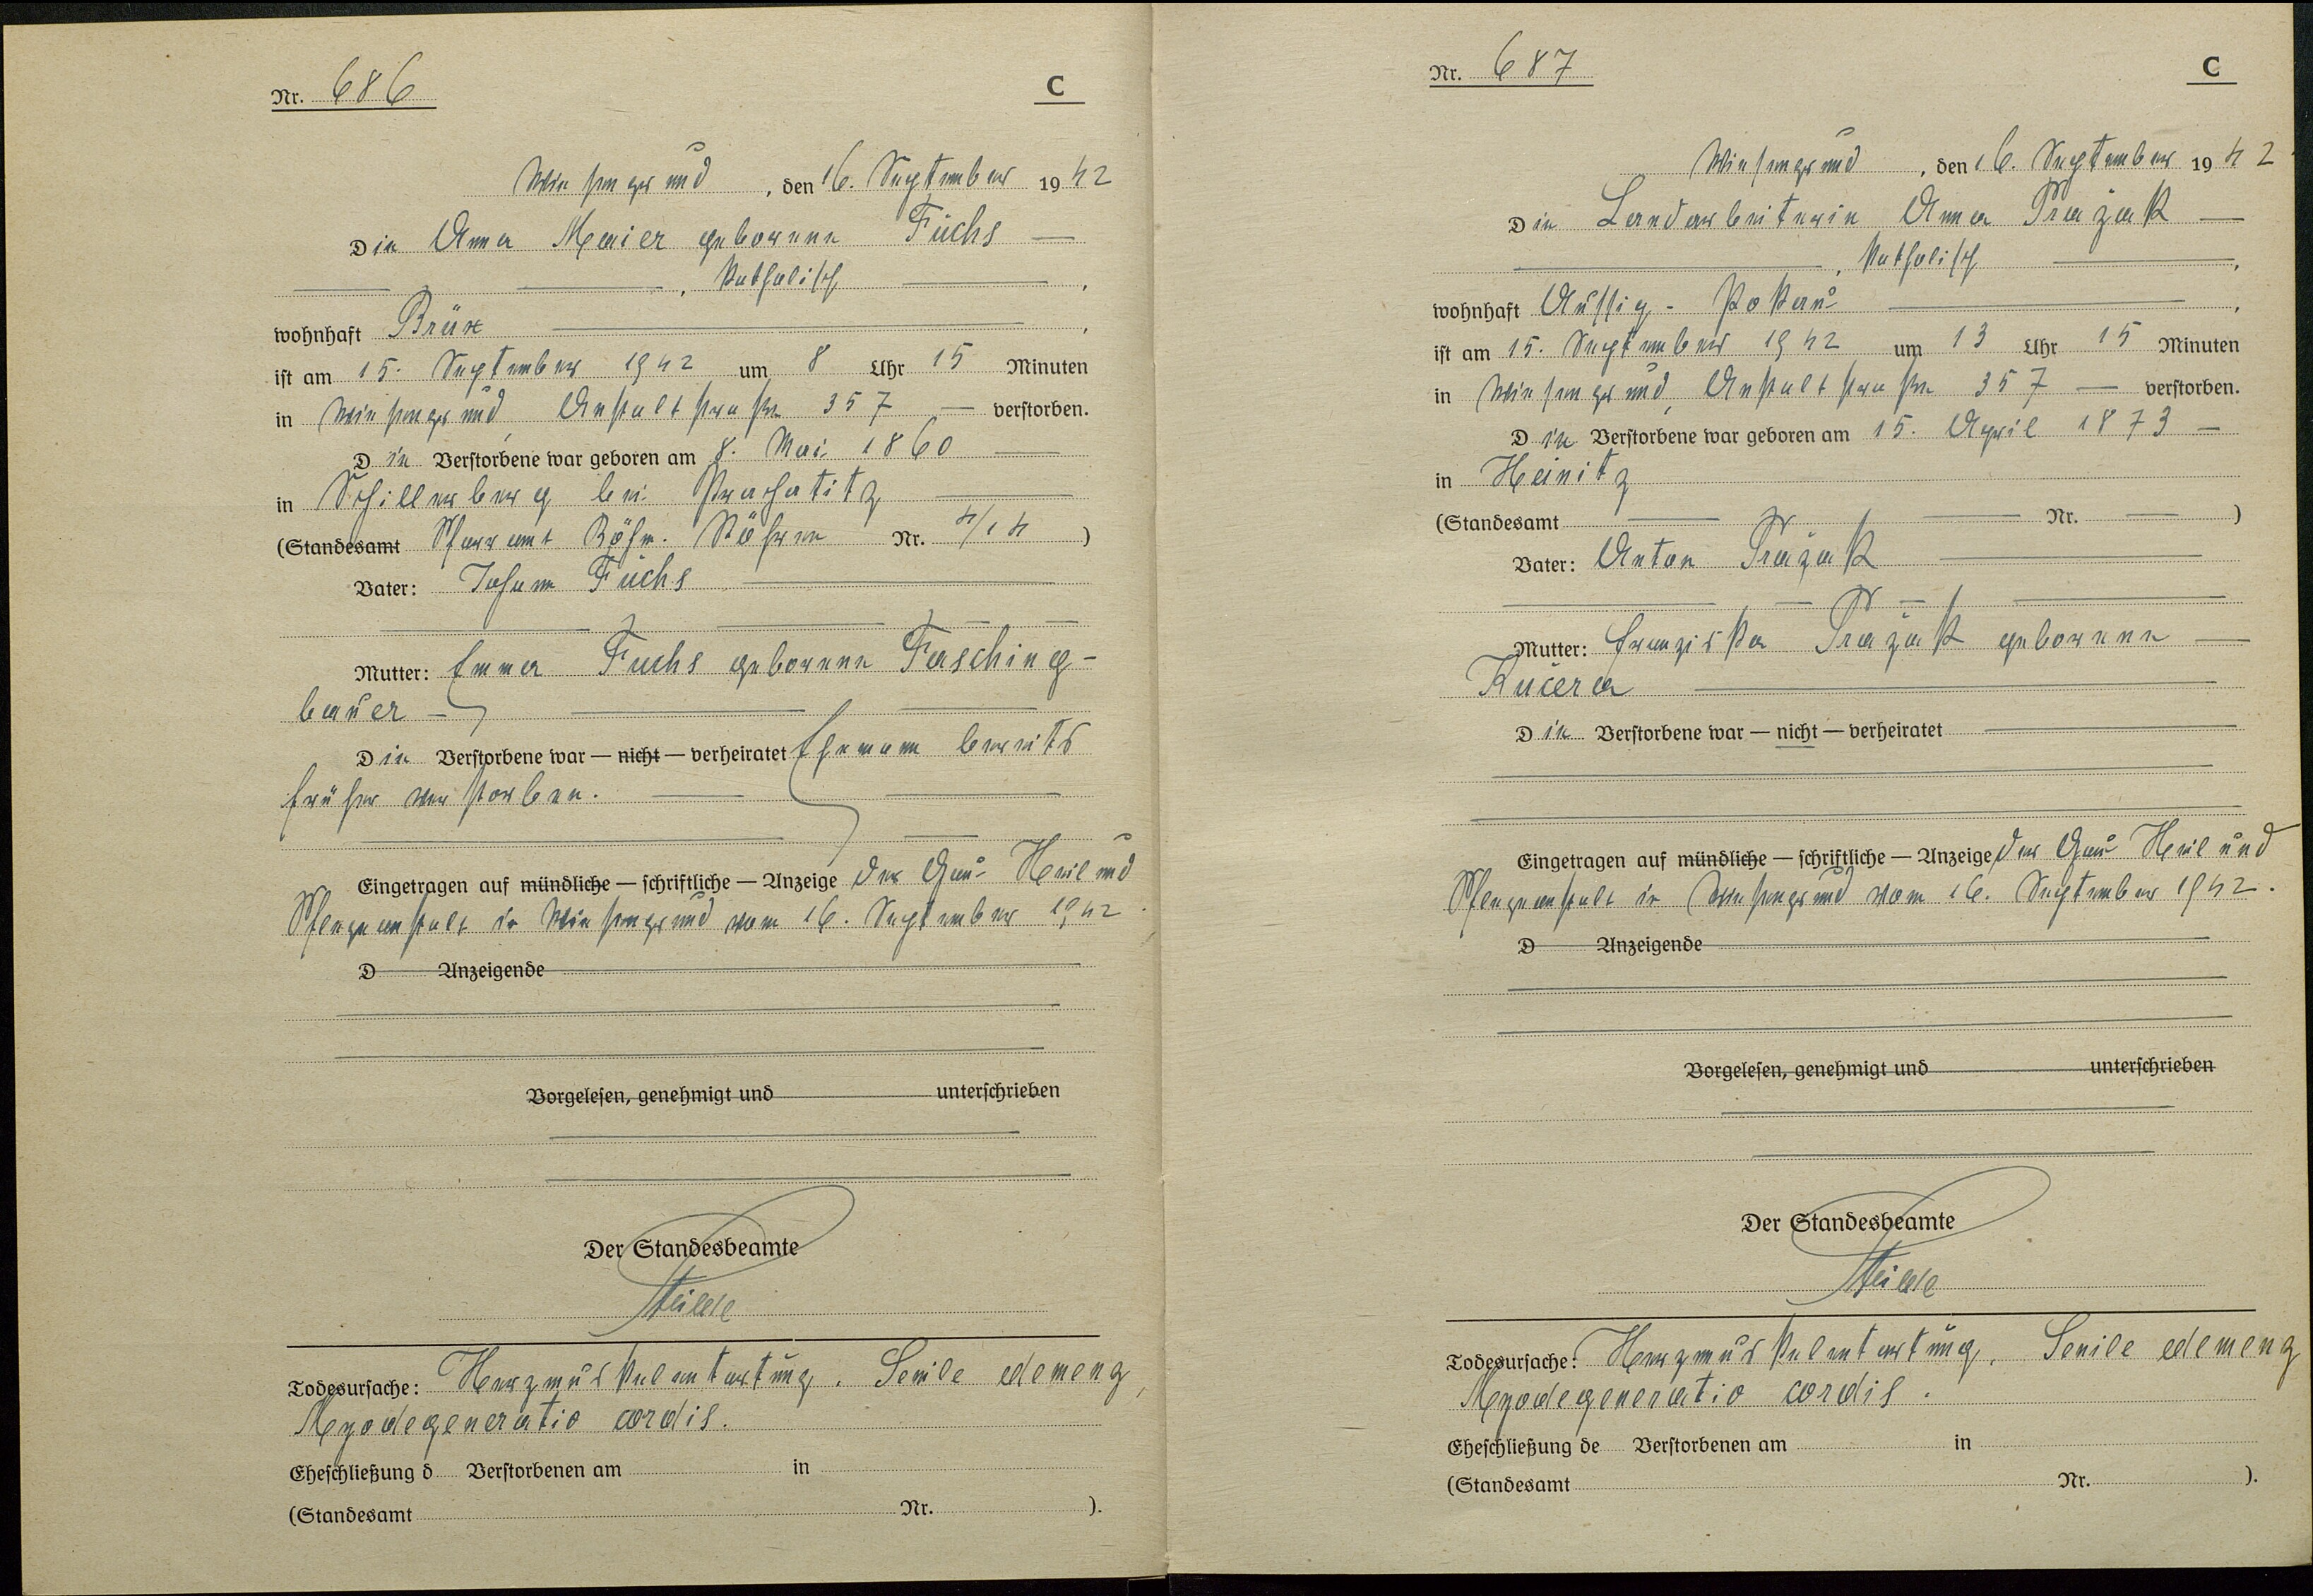 Nr. 686
C
Wiesengrund, den 16. September 1942
Die Anna Maier geborene Fuchs —
—, katholisch —,
wohnhaft Brüx —,
ist am 15. September 1942 um 8 Uhr 15 Minuten
in Wiesengrund, Anstaltstraße 357 — verstorben.
Die Verstorbene war geboren am 8. Mai 1860 —
in Schillerberg bei Prachatitz —
(Standesamt Pfarramt Böhm. Röhren Nr. 4/14)
Vater: Johann Fuchs —
Mutter: Emma Fuchs geborene Fasching-
bauer —
Die Verstorbene war — nicht — verheiratet Ehemann bereits
früher verstorben. —
Eingetragen auf mündliche — schriftliche — Anzeige der Gau- Heil und
Pflegeanstalt in Wiesengrund vom 16. September 1942.
D Anzeigende
Vorgelesen, genehmigt und unterschrieben
Der Standesbeamte
Todesursache: Herzmuskelentartung. Senile demenz,
Myodegeneratio cordis.
Eheschließung d Verstorbenen am in
(Standesamt Nr. ).
Nr. 687
C
Wiesengrund, den 16. September 1942
Die Landarbeiterin Anna Pražak —
—, katholisch —,
wohnhaft Aussig-Pokau —,
ist am 15. September 1942 um 13 Uhr 15 Minuten
in Wiesengrund, Anstaltstraße 357 — verstorben.
Die Verstorbene war geboren am 15. April 1873 —
in Heinitz
(Standesamt — Nr. —)
Vater: Anton Pražak —
Mutter: Franziska Pražak geborene —
Kučera —
Die Verstorbene war — nicht — verheiratet —
Eingetragen auf mündliche — schriftliche — Anzeige der Gau Heil und
Pflegeanstalt in Wiesengrund vom 16. September 1942.
D Anzeigende
Vorgelesen, genehmigt und unterschrieben
Der Standesbeamte
Todesursache: Herzmuskelentartung, Senile demenz
Myodegeneratio cordis.
Eheschließung de Verstorbenen am in
(Standesamt Nr. ).